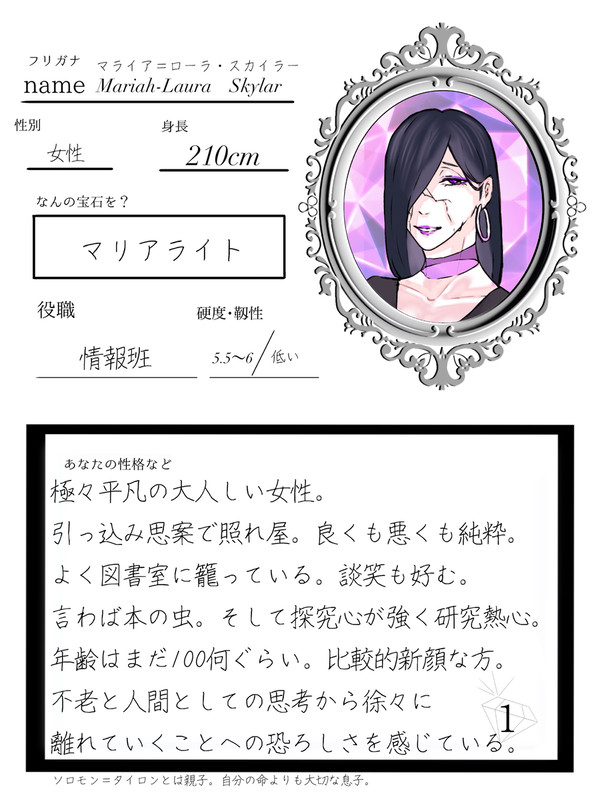 フリガナ マライア＝ローラ・スカイラー
name Mariah-Laura Skylar
性別 身長
女性 210cm
なんの宝石を？
マリアライト
役職 硬度・靱性
情報班 5.5〜6／低い
あなたの性格など
極々平凡の大人しい女性。
引っ込み思案で照れ屋。良くも悪くも純粋。
よく図書室に籠っている。談笑も好む。
言わば本の虫。そして探究心が強く研究熱心。
年齢はまだ100何ぐらい。比較的新顔な方。
不老と人間としての思考から徐々に
離れていくことへの恐ろしさを感じている。
1
ソロモン＝タイロンとは親子。自分の命よりも大切な息子。